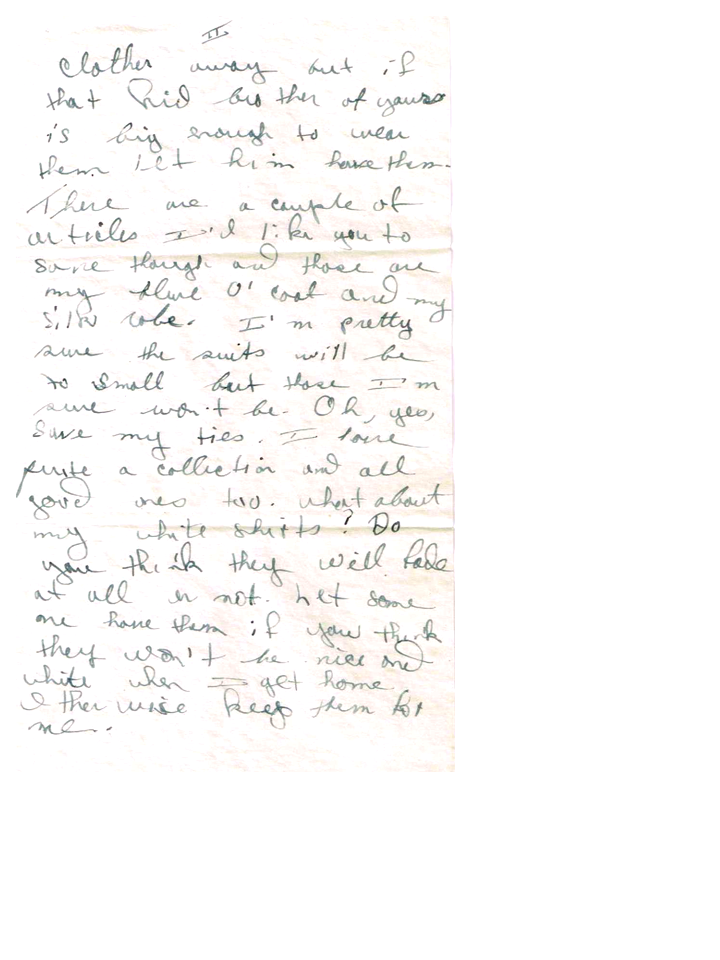 II
clothes away but if
that kid brother of yours
is big enough to wear
them let him have them.
There are a couple of
articles I'd like you to
save though and those are
my blue O'coat and my
silk robe. I'm pretty
sure the suits will be
to small but those I'm
sure won't be. Oh, yes,
save my ties. I have
quite a collection and all
good ones too. What about
my white shirts? Do
you think they will fade
at all or not. Let some
one have them if you think
they won't be nice and
white when I get home.
Otherwise keep them for
me.